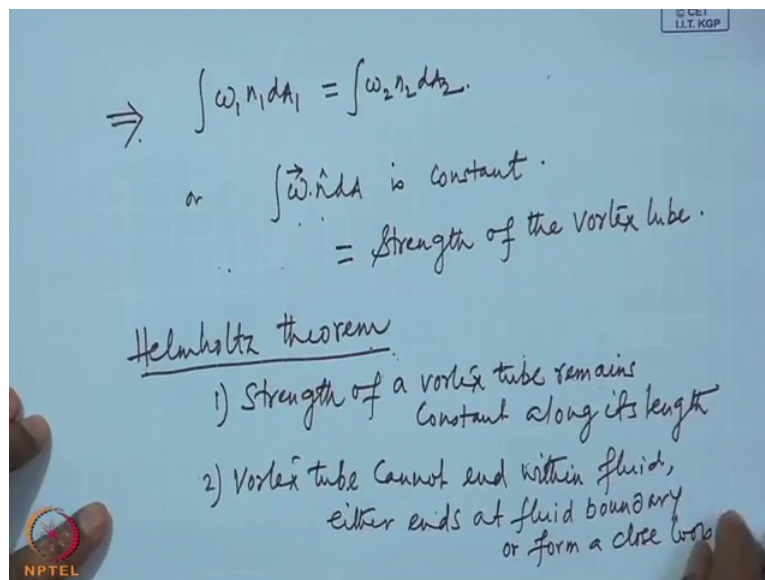 © CET
I.I.T. KGP
⇒ ∫ω₁n₁dA₁ = ∫ω₂n₂dA₂.
or ∫ω⃗.n̂dA is constant.
= Strength of the Vortex tube.
Helmholtz theorem
1) Strength of a vortex tube remains
Constant along its length
2) Vortex tube Cannot end within fluid,
either ends at fluid boundary
or form a close loop
NPTEL